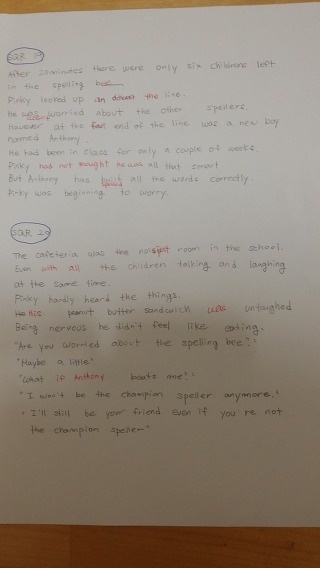 SQR 19
After 20 minutes there were only six childrens left
in the spelling bee
Pinky looked up an down the line.
He wasn't worried about the other spellers.
However at the far end of the line was a new boy
named Anthony.
He had been in class for only a couple of weeks.
Pinky had not thought he was all that smart
But Anthony has spelled all the words correctly.
Pinky was beginning to worry.
SQR 20
The cafeteria was the noisiest room in the school.
Even with all the children talking and laughing
at the same time.
Pinky hardly heard the things.
His peanut butter sandwich was untouched
Being nervous he didn't feel like eating.
"Are you worried about the spelling bee?"
"Maybe a little"
"What if Anthony beats me?"
"I won't be the champion speller anymore."
"I'll still be your friend even if you're not
the champion speller"